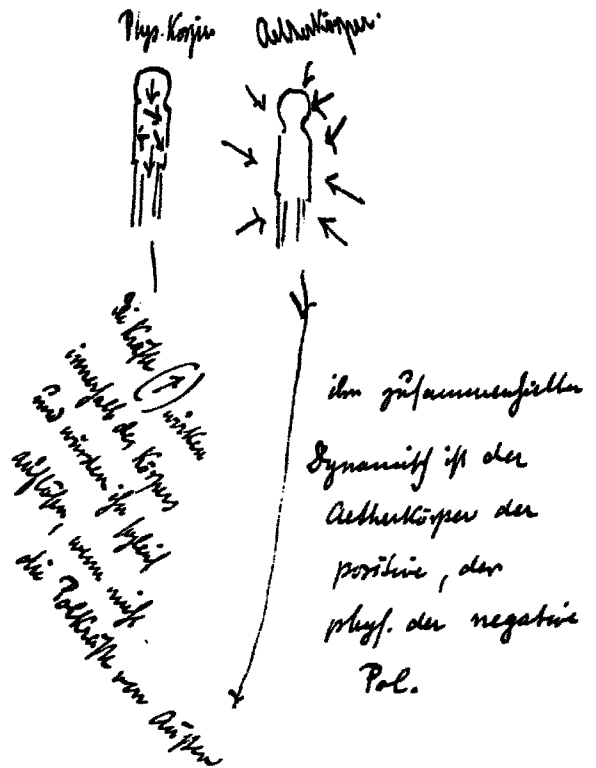 Phys. Körper
Aetherkörper.
die Kräfte (↗) wirken
innerhalb des Körpers
und würden ihn sogleich
auflösen, wenn nicht
die Polkräfte von Außen
ihn zusammenhielten
Dynamisch ist der
Aetherkörper der
positive, der
phys. der negative
Pol.